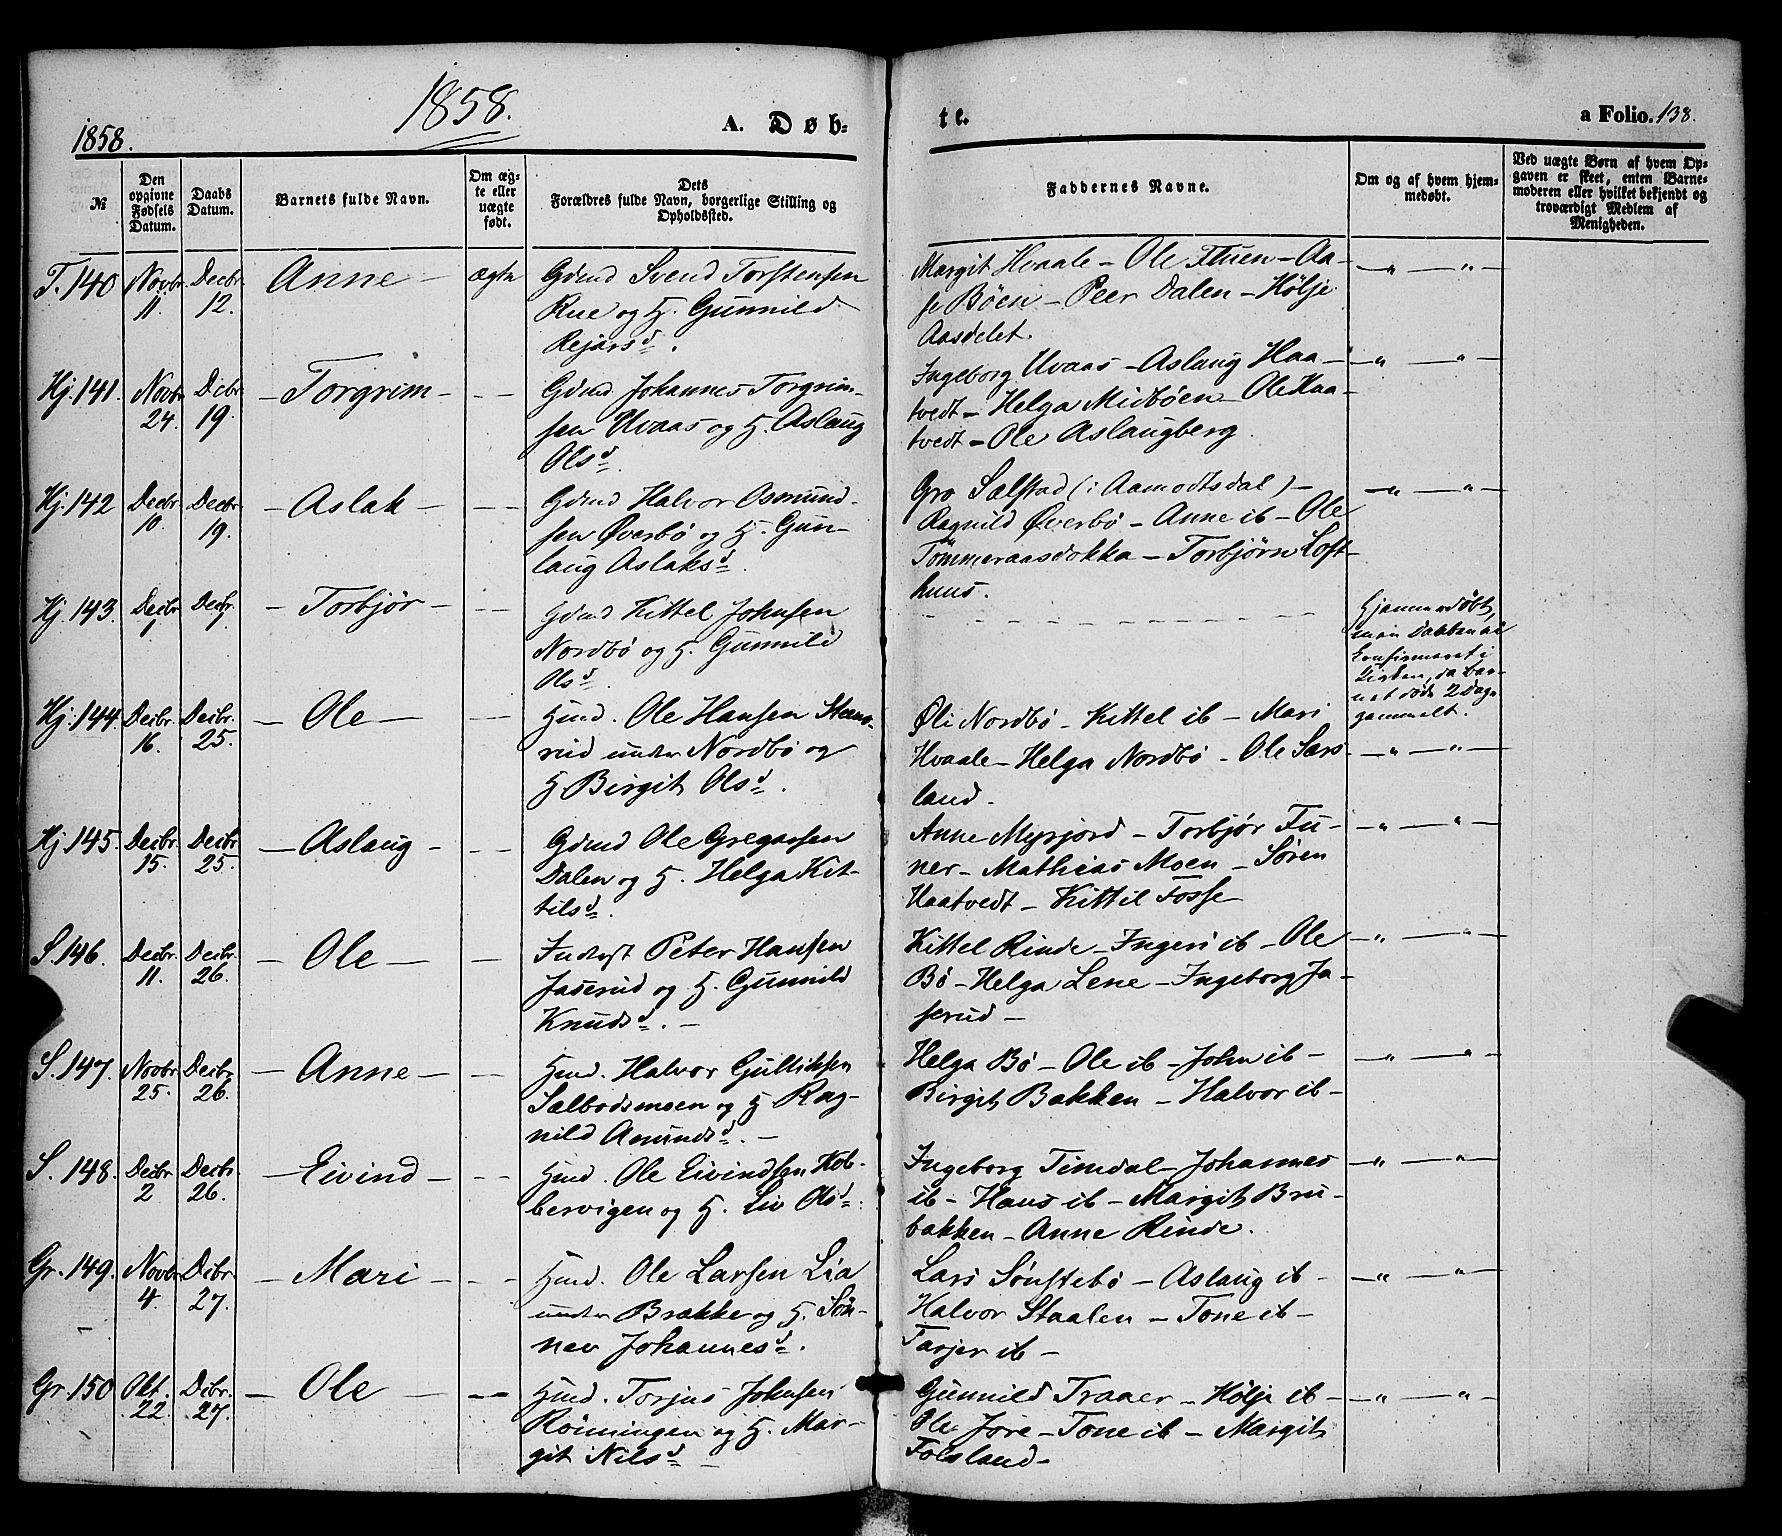 1858.
1858.
A. Døb-
te.
a Folio. 138.
№
Den opgivne Fødsels Datum.
Daabs Datum.
Barnets fulde Navn.
Om ægte eller uægte født.
Dets Forældres fulde Navn, borgerlige Stilling og Opholdssted.
Faddernes Navne.
Om og af hvem hjemmedøbt.
Ved uægte Børn af hvem Opgaven er skeet, enten Barnemoderen eller hvilket bekjendt og troværdigt Medlem af Menigheden.
T. 140 Novbr. 11. Decbr. 12. Anne – ægte
Gdmd Svend Torstensen
Rue og H. Gunnild
Rejarsd.
Margit Hvaale – Ole Thuen – Aa-
se Böen – Peer Dalen – Hölje
Aasdelet.
– „ – „ –
Hj. 141. Novbr. 24. Decbr. 19. – Torgrim – - -
Gdmd Johannes Torgrim-
sen Uvaas og H. Aslaug
Olsd.
Ingeborg Uvaas – Aslaug Haa-
tvedt – Helga Midböen – Ole Haa-
tvedt – Ole Aslaugberg.
– „ – „ –
Hj. 142 Decbr. 10. Decbr. 19. – Aslak – - -
Gdmd Halvor Osmund-
sen Øverbö og H. Gun-
laug Aslaksd.
Gro Sælstad (i Aamodtsdal) –
Ragnild Øverbö – Anne ib – Ole
Tömmeraasdokka – Torbjörn Loft-
huus.
– „ – „ –
Hj. 143. Decbr. Decbr. – Torbjör – - -
Gdmd Kittel Johnsen
Nordbö og H. Gunnild
Olsd.
Hjemmedöbt,
men Daaben ei
konfirmeret i
Kirken, da Bar-
net döde 2 Dage
gammelt.
Hj. 144. Decbr. 16. Decbr. 25. – Ole – - -
Hmd. Ole Hansen Steens-
rud under Nordbö og
H Birgit Olsd.
Øli Nordbö – Kittel ib – Mari
Hvaale – Helga Nordbö – Ole Sørs-
land.
– „ – „ –
Hj. 145. Decbr. 15. Decbr. 25. – Aslaug – - -
Gdmd Ole Gregarsen
Dalen og H. Helga Kit-
tilsd.
Anne Myrjord – Torbjör Fu-
ner – Mathias Moen – Sören
Haatvedt – Kittil Fosse
– „ – „ –
S. 146. Decbr. 11. Decbr. 26. – Ole – –
Inderst Peter Hansen
Jaserud og H. Gunnild
Knudsd. –
Kittel Rinde – Ingeri ib – Ole
Bö – Helga Lene – Ingeborg Ja-
serud –
– „ – „ –
S. 147. Novbr. 25. Decbr. 26. – Anne – - -
Hmd. Halvor Gulliksen
Sælbodsmoen og H Rag-
nild Amundsd. –
Helga Bö – Ole ib – John ib –
Birgit Bakken – Halvor ib –
– „ – „ –
S. 148. Decbr. 2 Decbr. 26. – Eivind – - -
Hmd. Ole Eivindsen Kob-
bervigen og H. Liv Olsd.
Ingeborg Timdal – Johannes
ib – Hans ib – Margit Bru-
bakken – Anne Rinde.
– „ – „ –
Gr. 149. Novbr. 4. Decbr. 27. – Mari – - -
Hmd. Ole Larsen Lia
under Brække og H. Sön-
nev Johannesd.
Lars Sönstebö – Aslaug ib –
Halvor Staalen – Tone ib –
Tarjer ib –
– „ – „ –
Gr. 150 Okt. 22. Decbr. 27. – Ole – –
Hmd. Torjus Johnsen
Rönningen og H. Mar-
git Nilsd –
Gunnild Traaer – Hölje ib –
Ole Jore – Tone ib – Margit
Folsland –
– „ – „ –